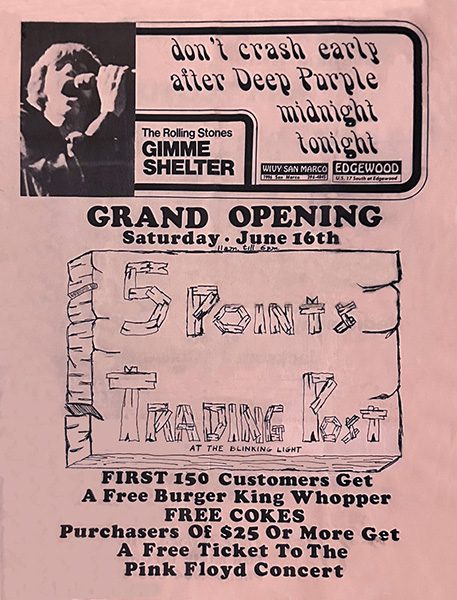 don't crash early
after Deep Purple
midnight
tonight
The Rolling Stones
GIMME
SHELTER
WIVY SAN MARCO
1996 San Marco 396-4845
EDGEWOOD
U.S. 17 South at Edgewood
GRAND OPENING
Saturday · June 16th
11am till 6pm
5 POINTS
TRADING POST
AT THE BLINKING LIGHT
FIRST 150 Customers Get
A Free Burger King Whopper
FREE COKES
Purchasers Of $25 Or More Get
A Free Ticket To The
Pink Floyd Concert